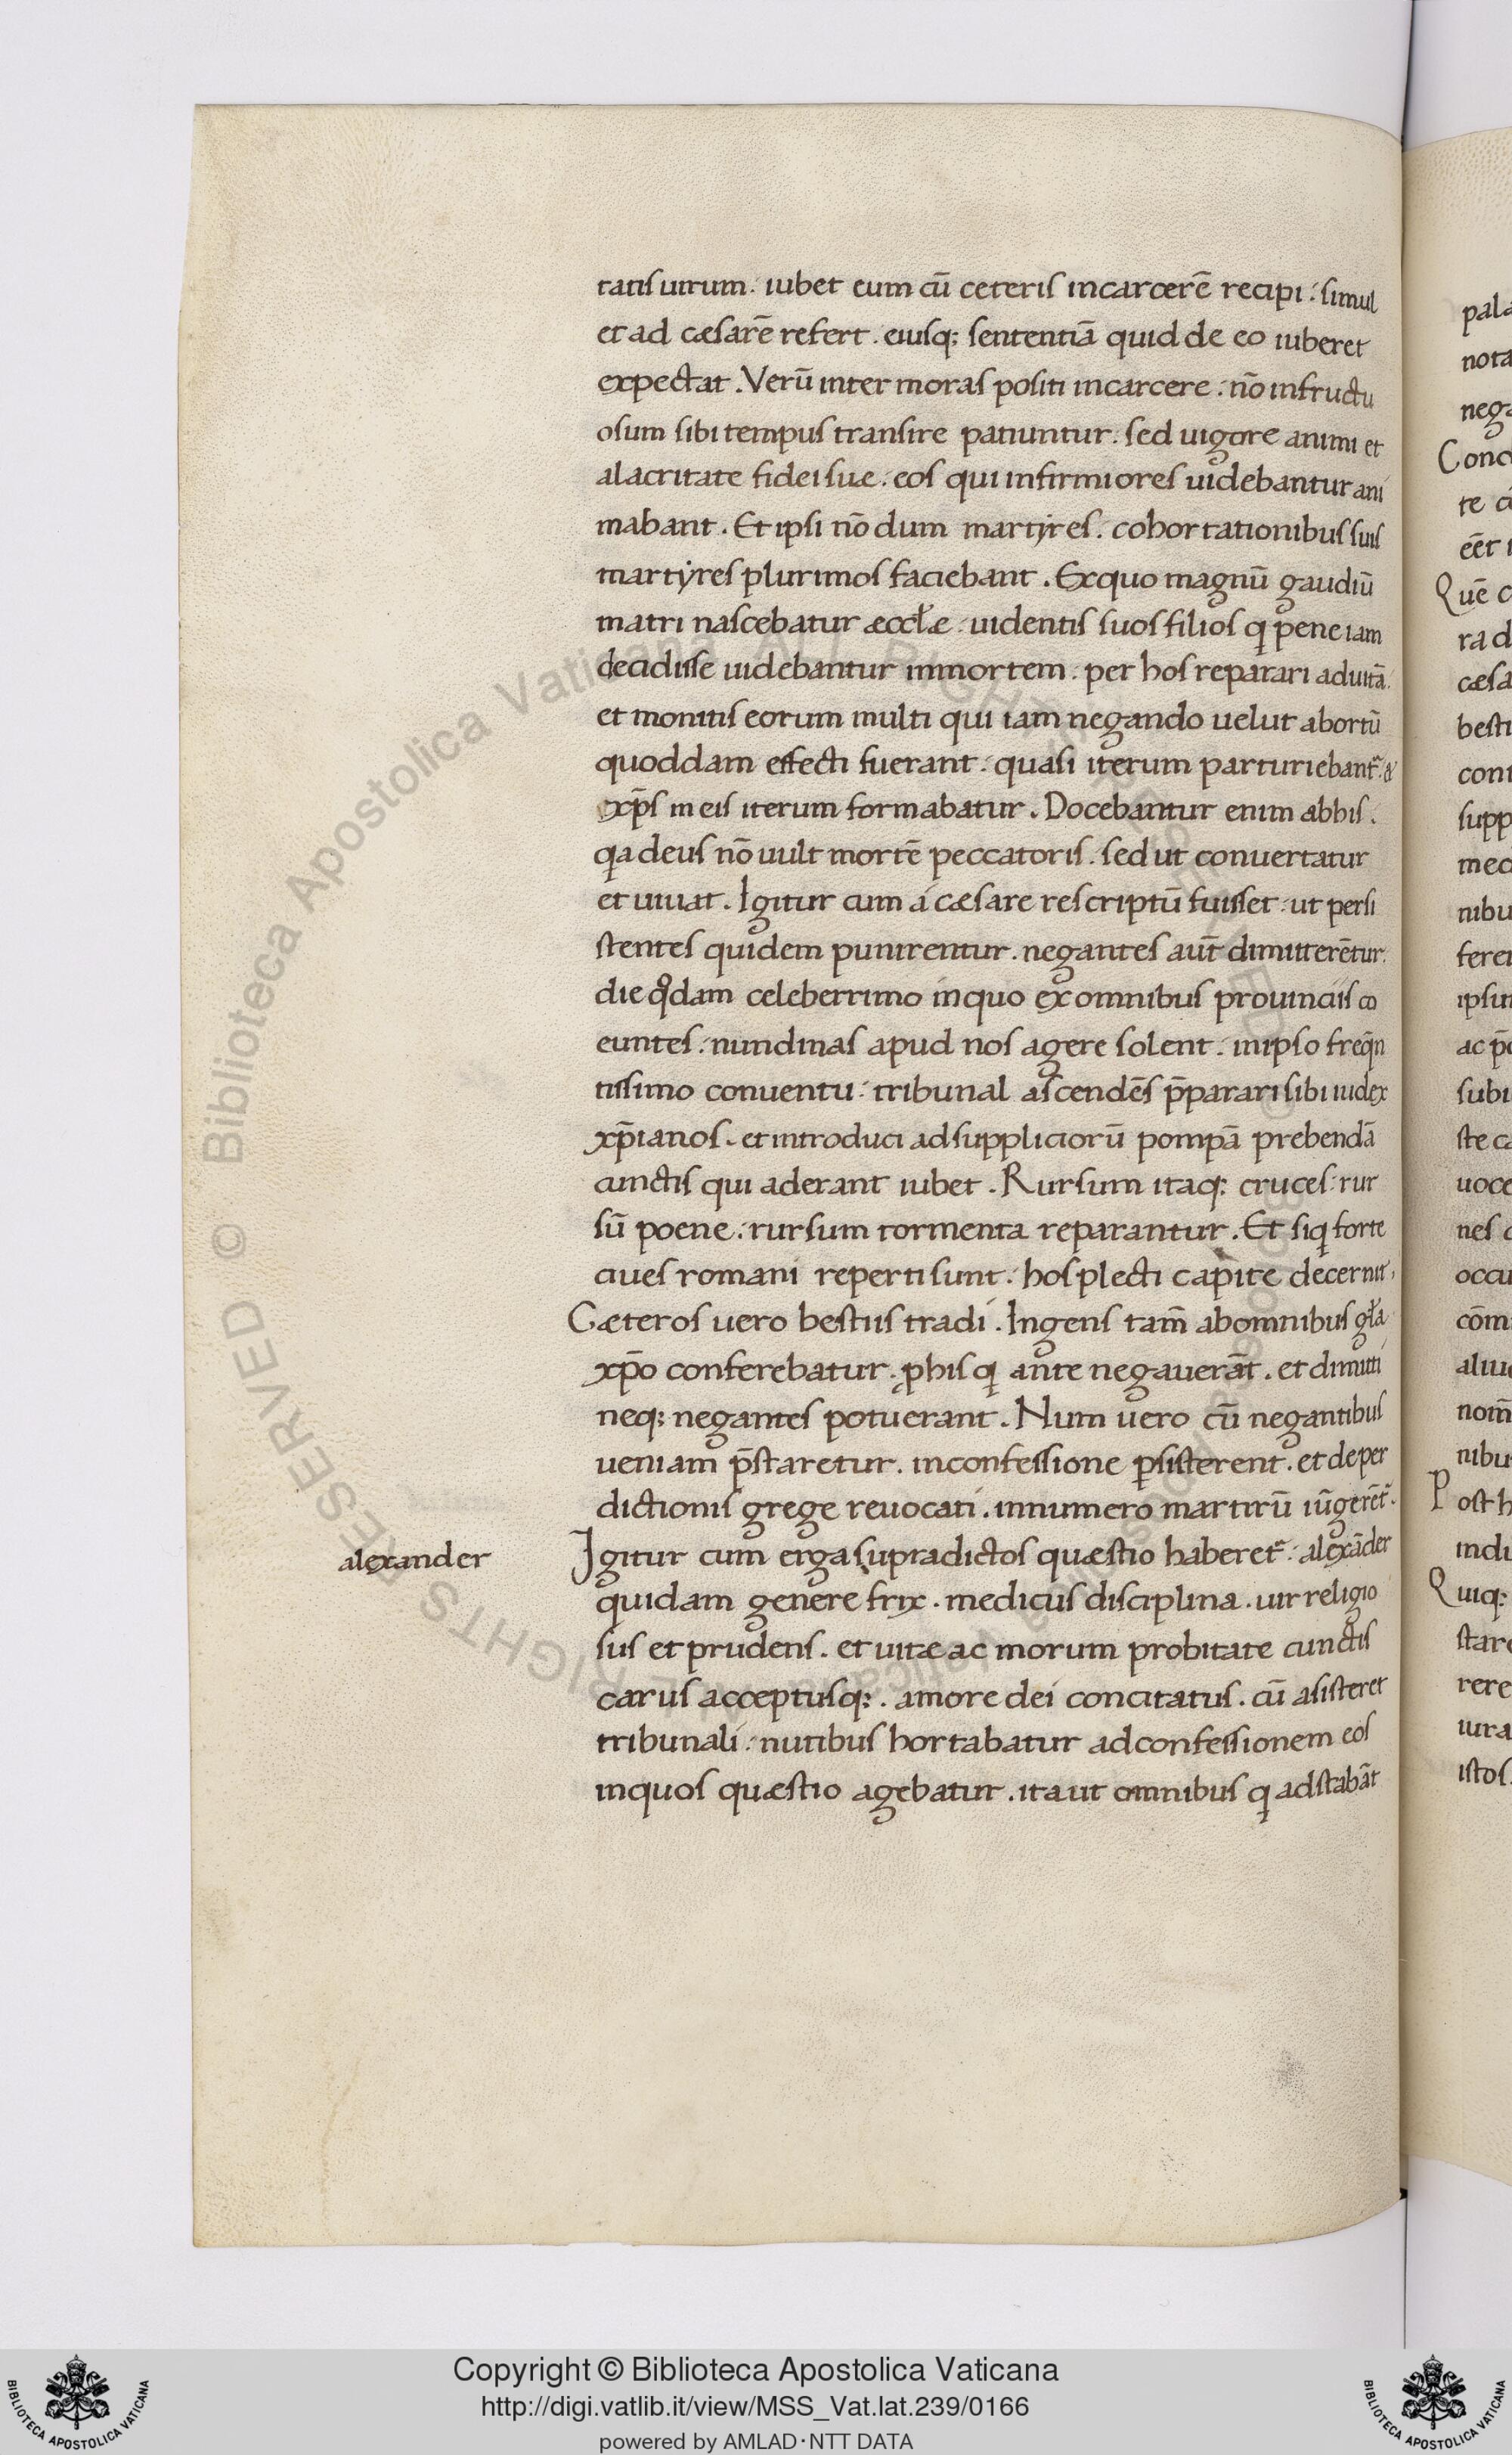 tatis uirum. iubet eum cū ceteris in carcerē recipi: simul
et ad cæsarē refert. eiusq; sententiā quid de eo iuberet
expectat. Verū inter moras positi in carcere: nō infructu
osum sibi tempus transire patiuntur: sed uigore animi et
alacritate fidei suæ: eos qui infirmiores uidebantur ani
mabant. Et ipsi nō dum martyres: cohortationibus suis
martyres plurimos faciebant. Ex quo magnū gaudiū
matri nascebatur æccłæ: uidentis suos filios q pene iam
decidisse uidebantur in mortem: per hos reparari ad uitā.
et monitis eorum multi qui iam negando uelut abortū
quoddam effecti fuerant: quasi iterum parturiebant̄. &
xp̄s in eis iterum formabatur. Docebantur enim ab his.
qa deus nō uult mortē peccatoris. sed ut conuertatur
et uiuat. Igitur cum á cæsare rescriptū fuisset: ut persi
stentes quidem punirentur. negantes aut̄ dimitterētur.
die qͦdam celeberrimo in quo ex omnibus prouinciis co
euntes: nundinas apud nos agere solent. in ipso freq̄n
tissimo conuentu: tribunal ascendēs p̄parari sibi iudex
xp̄ianos. et introduci ad suppliciorū pompā prebendā
cunctis qui aderant iubet. Rursum itaq; cruces: rur
sū poene: rursum tormenta reparantur. Et siq forte
ciues romani reperti sunt: hos plecti capite decernit,
Cæteros uero bestiis tradi. Ingens tam̄ ab omnibus gła
xp̄o conferebatur. ꝓ his q ante negauerāt. et dimitti
neq; negantes potuerant. Num uero cū negantibus
ueniam p̄staretur. in confessione ꝑsisterent. et de per
dictionis grege reuocati. in numero martirū iūgerēt̄.
alexander
Igitur cum erga supradictos quæstio haberet̄: alexāder
quidam genere frix. medicus disciplina. uir religio
sus et prudens. et uitæ ac morum probitate cunctis
carus acceptusq;. amore dei concitatus. cū asisteret
tribunali: nutibus hortabatur ad confessionem eos
in quos quæstio agebatur. ita ut omnibus q adstabāt
pala
nota
nega
Conc
te
eēt
Quē c
ra d
cæsa
besti
cont
supp
med
nibu
ferer
ipsu
ac
subi
ste ca
uoce
nes
occu
cōm
aliu
nom̄
nibu
Post h
indi
Quiq;
stare
rere
iura
istos
© Biblioteca Apostolica Vaticana ALL RIGHTS RESERVED
Copyright © Biblioteca Apostolica Vaticana
http://digi.vatlib.it/view/MSS_Vat.lat.239/0166
powered by AMLAD·NTT DATA
BIBLIOTECA APOSTOLICA VATICANA
BIBLIOTECA APOSTOLICA VATICANA